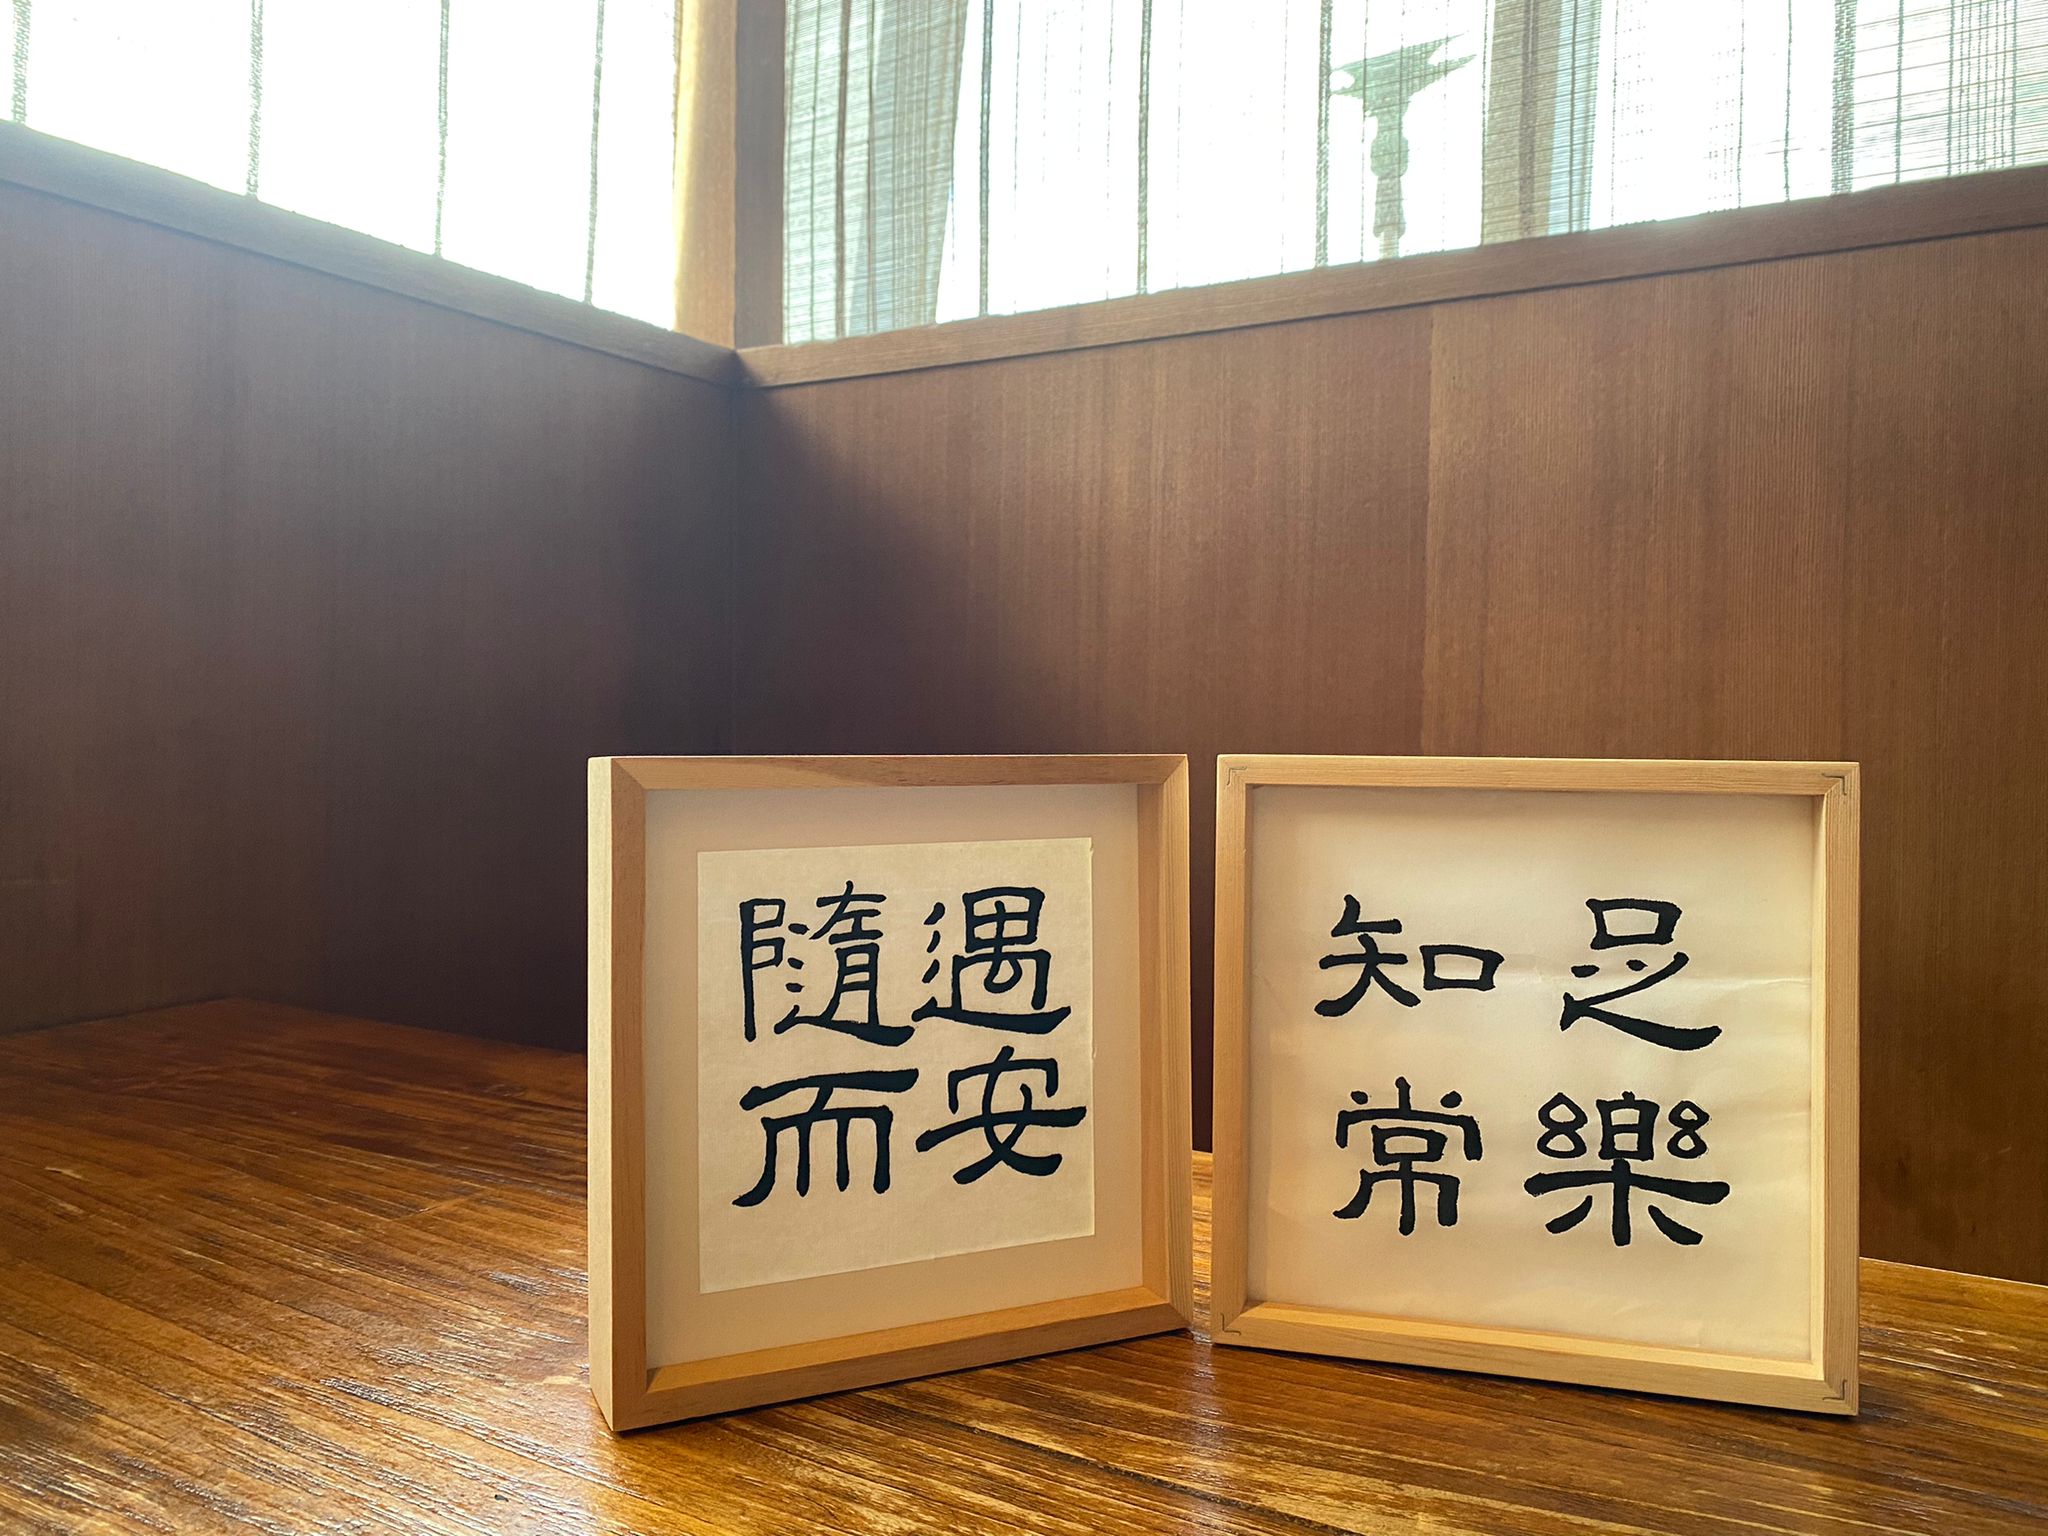 隨遇
而安
知足
常樂